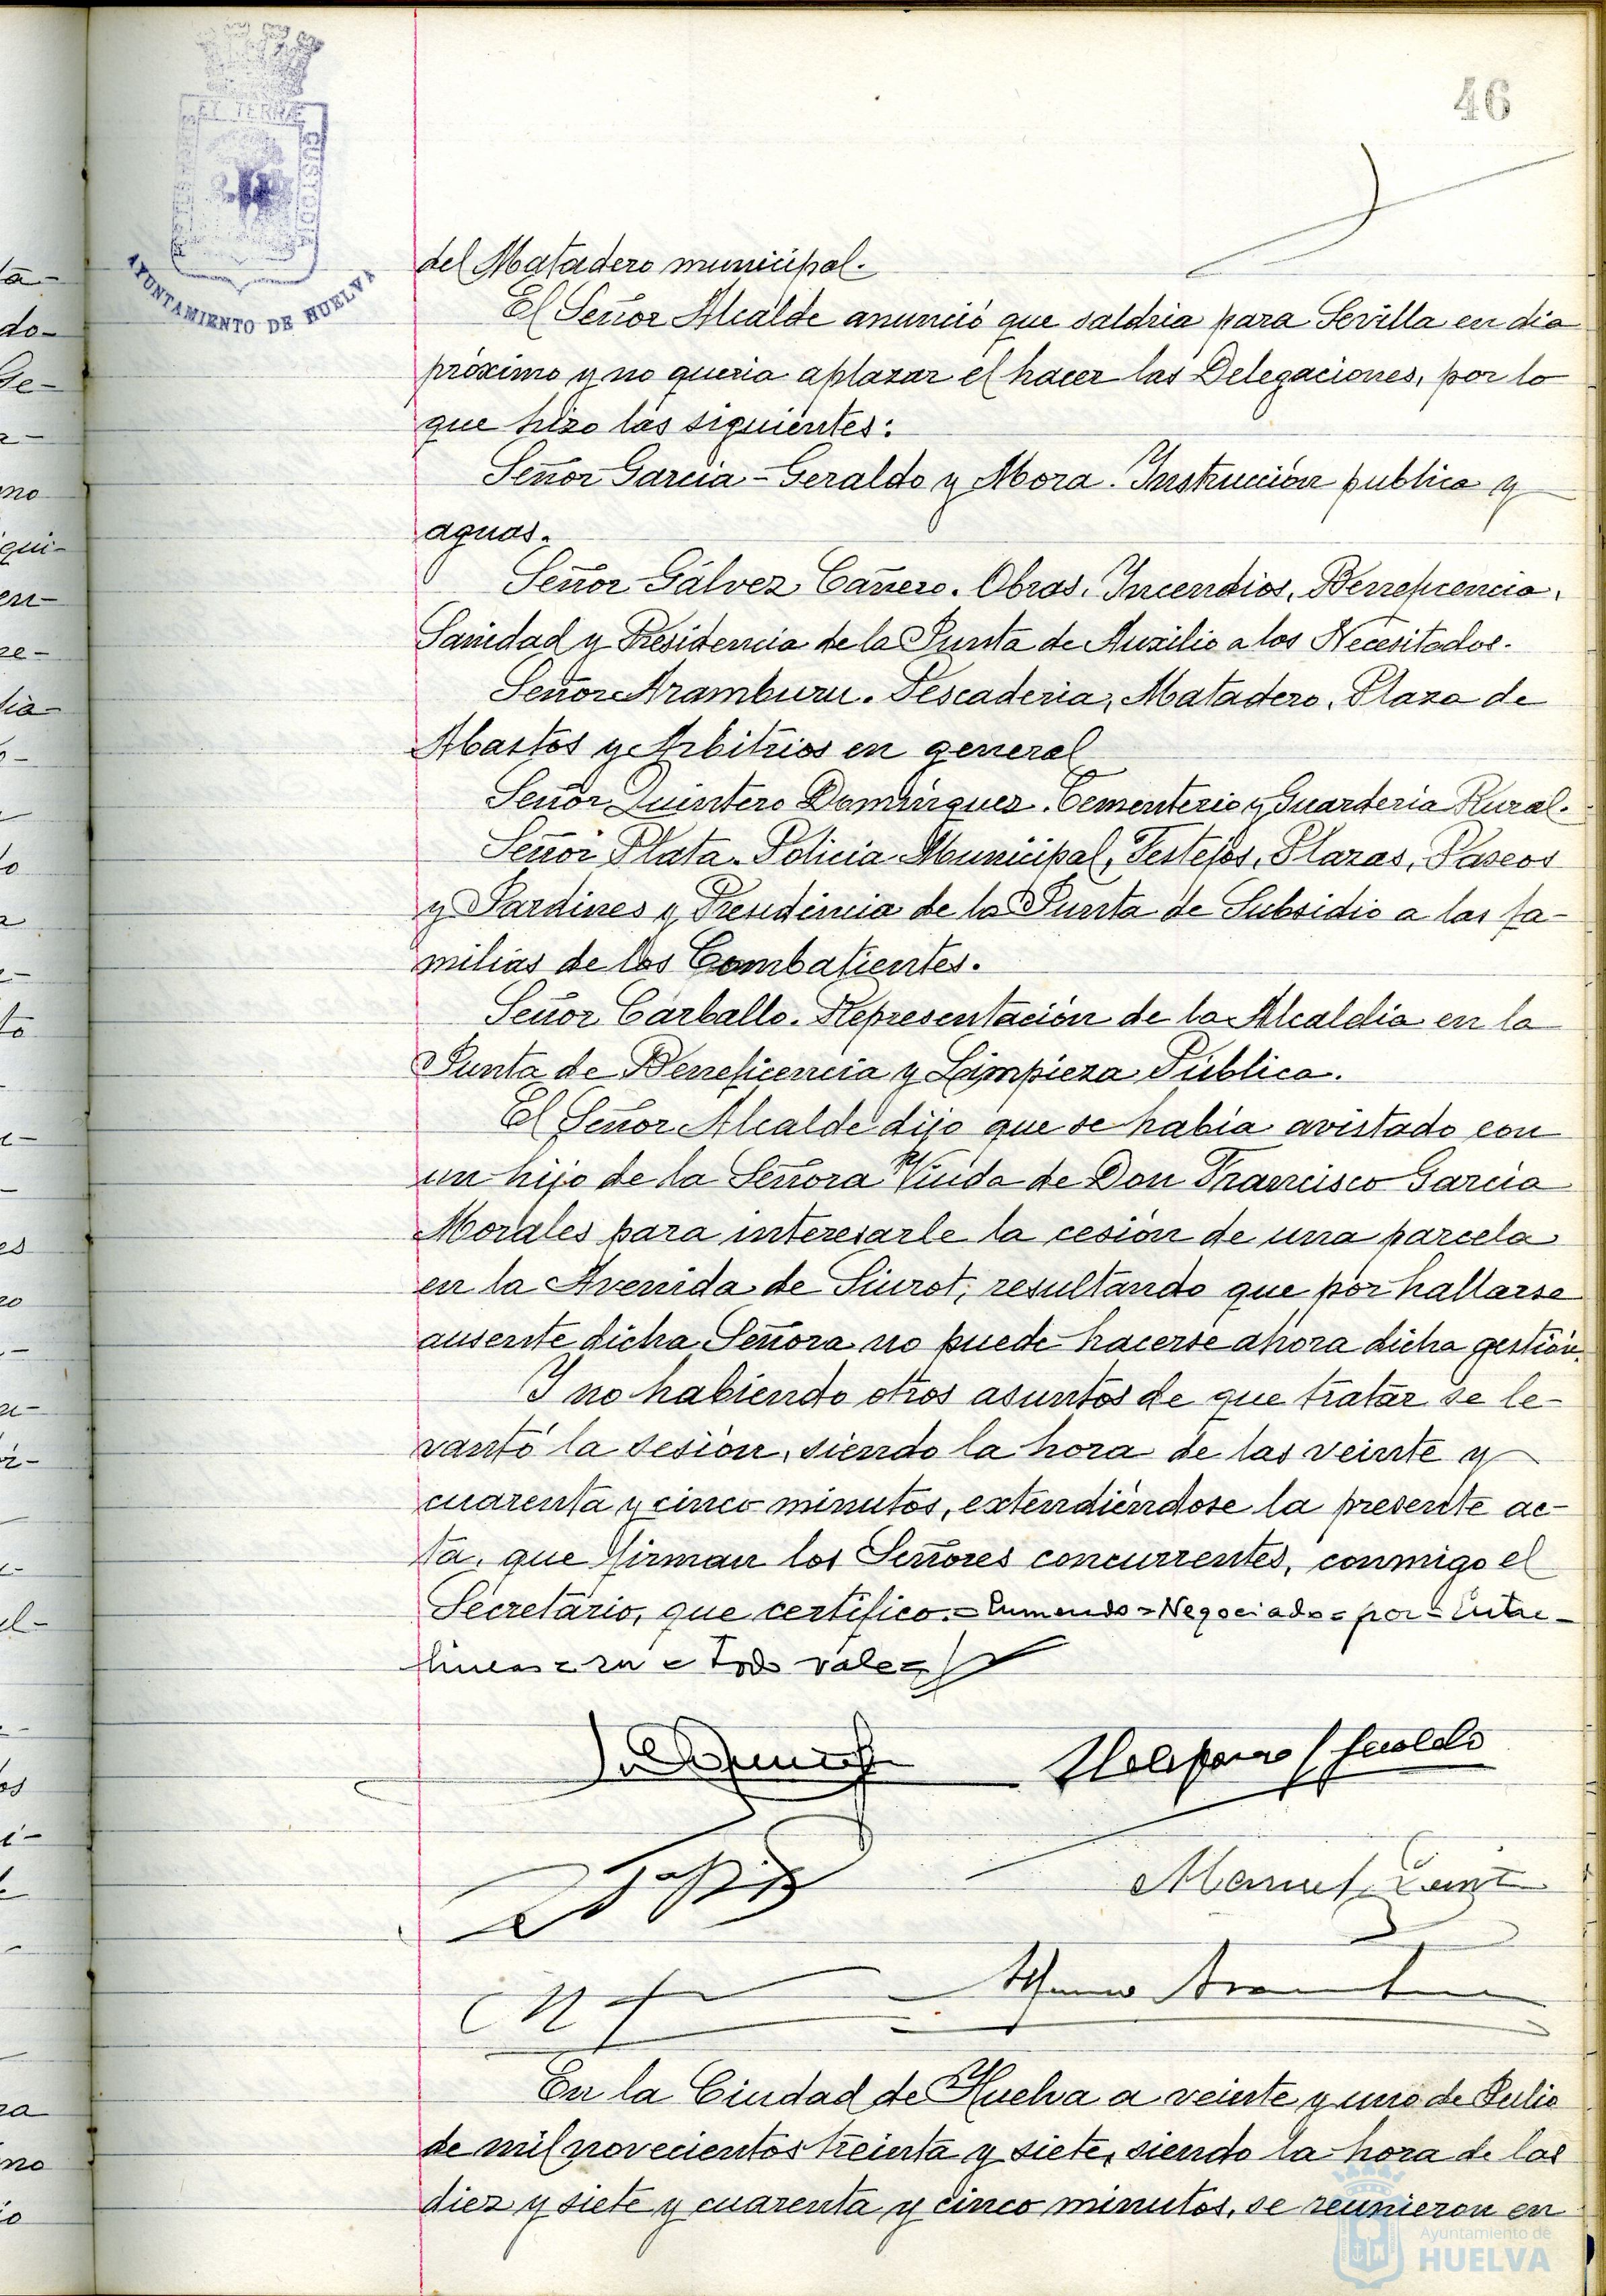 46
ET TERRÆ
CUSTODIA
AYUNTAMIENTO DE HUELVA
del Matadero municipal.
El Señor Alcalde anunció que saldria para Sevilla en dia
próximo y no queria aplazar el hacer las Delegaciones, por lo
que hizo las siguientes:
Señor Garcia-Geraldo y Mora. Instrucción publica y
aguas.
Señor Gálvez Cañero. Obras. Incendios, Beneficencia,
Sanidad y Presidencia de la Junta de Auxilio a los Necesitados.
Señor Aramburu. Pescaderia, Matadero, Plaza de
Abastos y Arbitrios en general
Señor Quintero Dominguez. Cementerio y Guarderia Rural.
Señor Plata. Policia Municipal, Festejos, Plazas, Paseos
y Jardines y Presidencia de la Junta de Subsidio a las fa-
milias de los Combatientes.
Señor Carballo. Representación de la Alcaldia en la
Junta de Beneficencia y Limpieza Pública.
El Señor Alcalde dijo que se habia avistado con
un hijo de la Señora Viuda de Don Francisco Garcia
Morales para interesarle la cesión de una parcela
en la Avenida de Siurot, resultando que por hallarse
ausente dicha Señora no puede hacerse ahora dicha gestión.
Y no habiendo otros asuntos de que tratar se le-
vantó la sesión, siendo la hora de las veinte y
cuarenta y cinco minutos, extendiéndose la presente ac-
ta, que firman los Señores concurrentes, conmigo el
Secretario, que certifico.=Enmendo=Negociado=por=Entre-
lineas= =Todo vale=
Manuel
En la Ciudad de Huelva a veinte y uno de Julio
de mil novecientos treinta y siete, siendo la hora de las
diez y siete y cuarenta y cinco minutos, se reunieron en
Ayuntamiento de
HUELVA